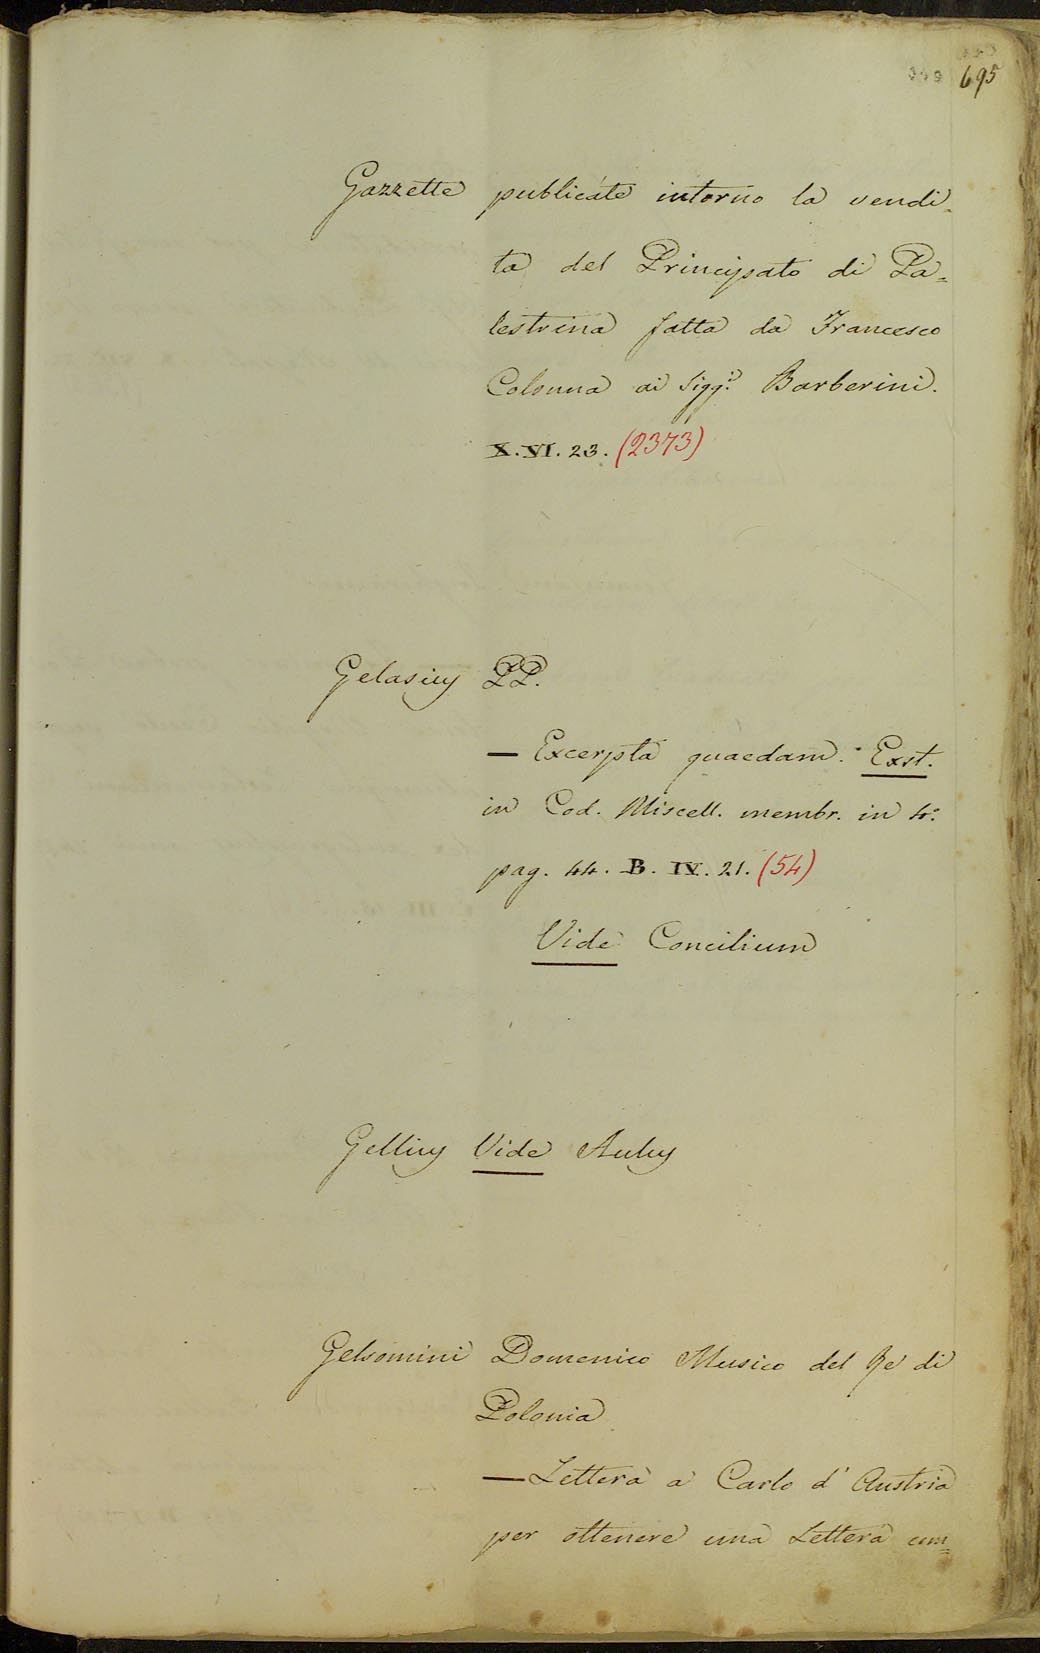 695
Gazzette publicate intorno la vendi-
ta del Principato di Pa=
lestrina fatta da Francesco
Colonna ai Sigg.i Barberini.
X. VI. 23. (2373)
Gelasius PP.
— Excerpta quaedam. Exst.
in Cod. Miscell. membr. in 4.º
pag. 44. B. IV. 21. (54)
Vide Concilium
Gellius Vide Aulus
Gelsomini Domenico Musico del Re di
Polonia
— Lettera a Carlo d' Austria
per ottenere una Lettera com=